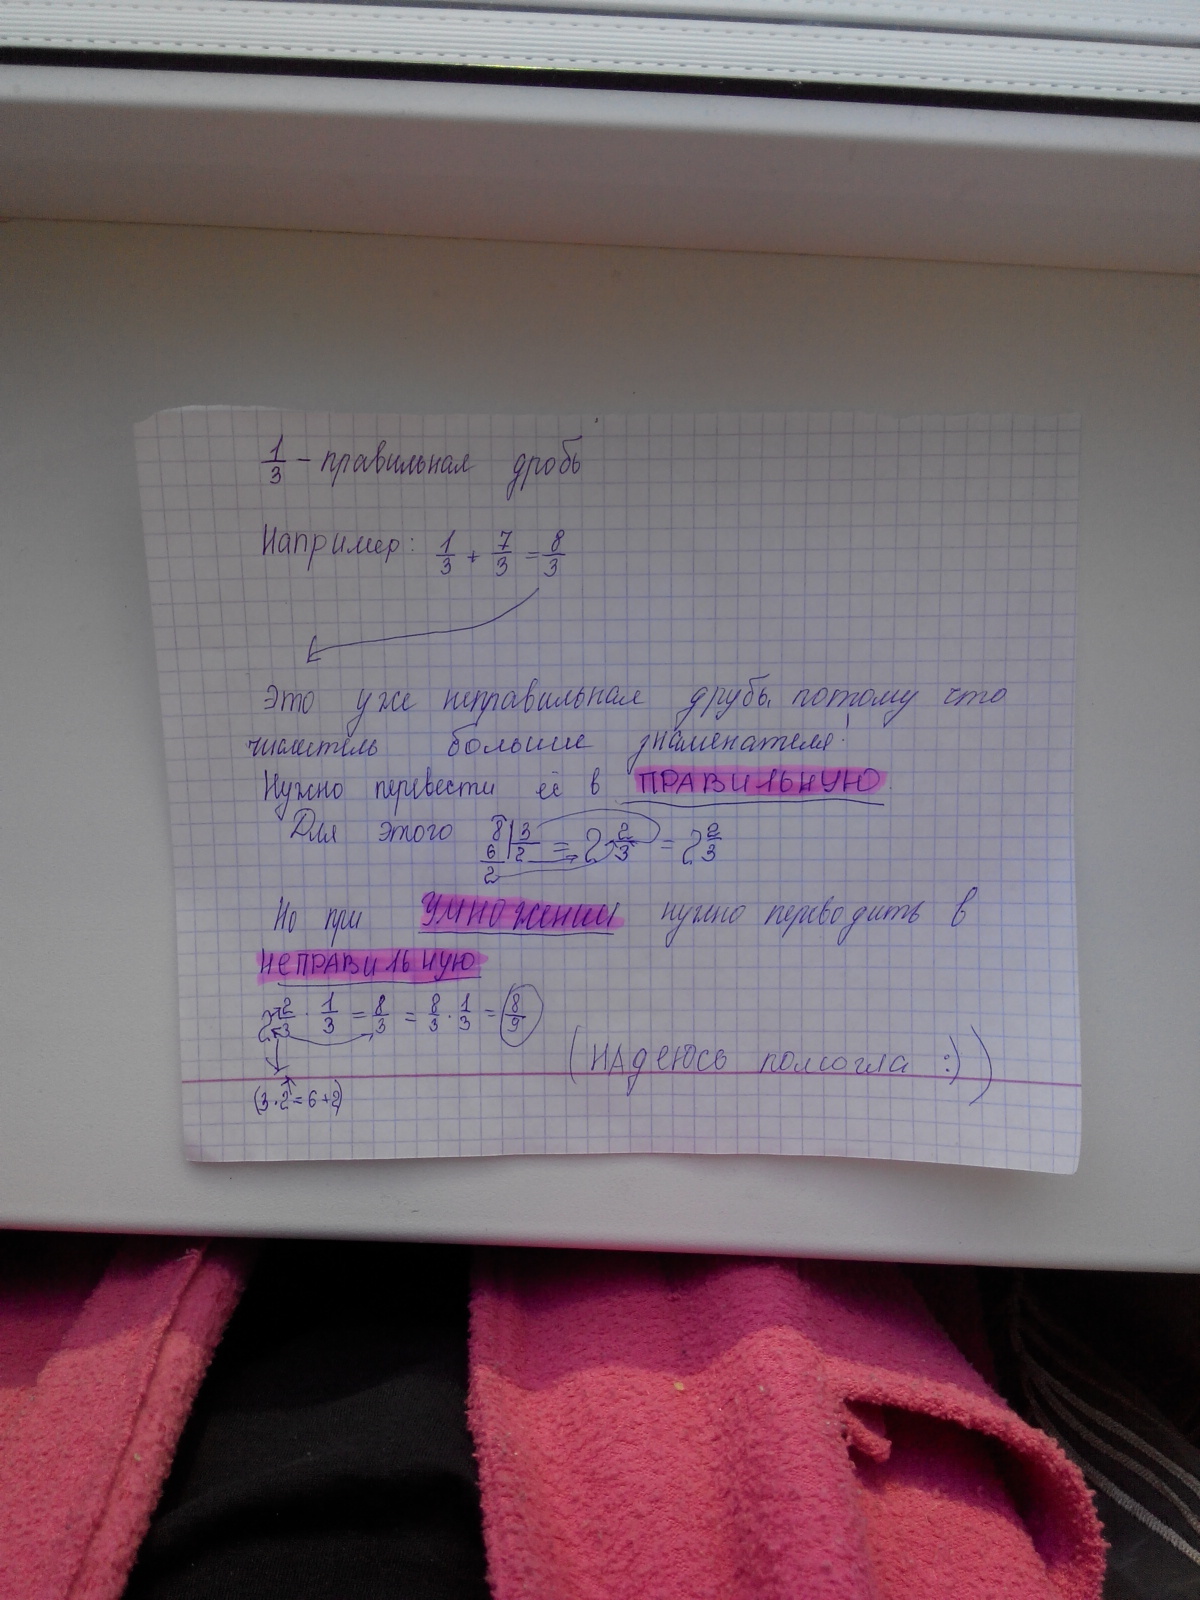 1/3 - правильная дробь
Например: 1/3 + 7/3 = 8/3
Это уже неправильная друбь, потому что
числитель больше знаменателя!
Нужно перевести её в ПРАВИЛЬНУЮ.
Для этого 8 | 3 = 2 2/3 = 2 2/3
6 2
2
Но при УМНОЖЕНИИ нужно переводить в
НЕПРАВИЛЬНУЮ
2 2/3 · 1/3 = 8/3 = 8/3 · 1/3 = 8/9
(НАДЕЮСЬ помогла :))
(3·2=6+2)